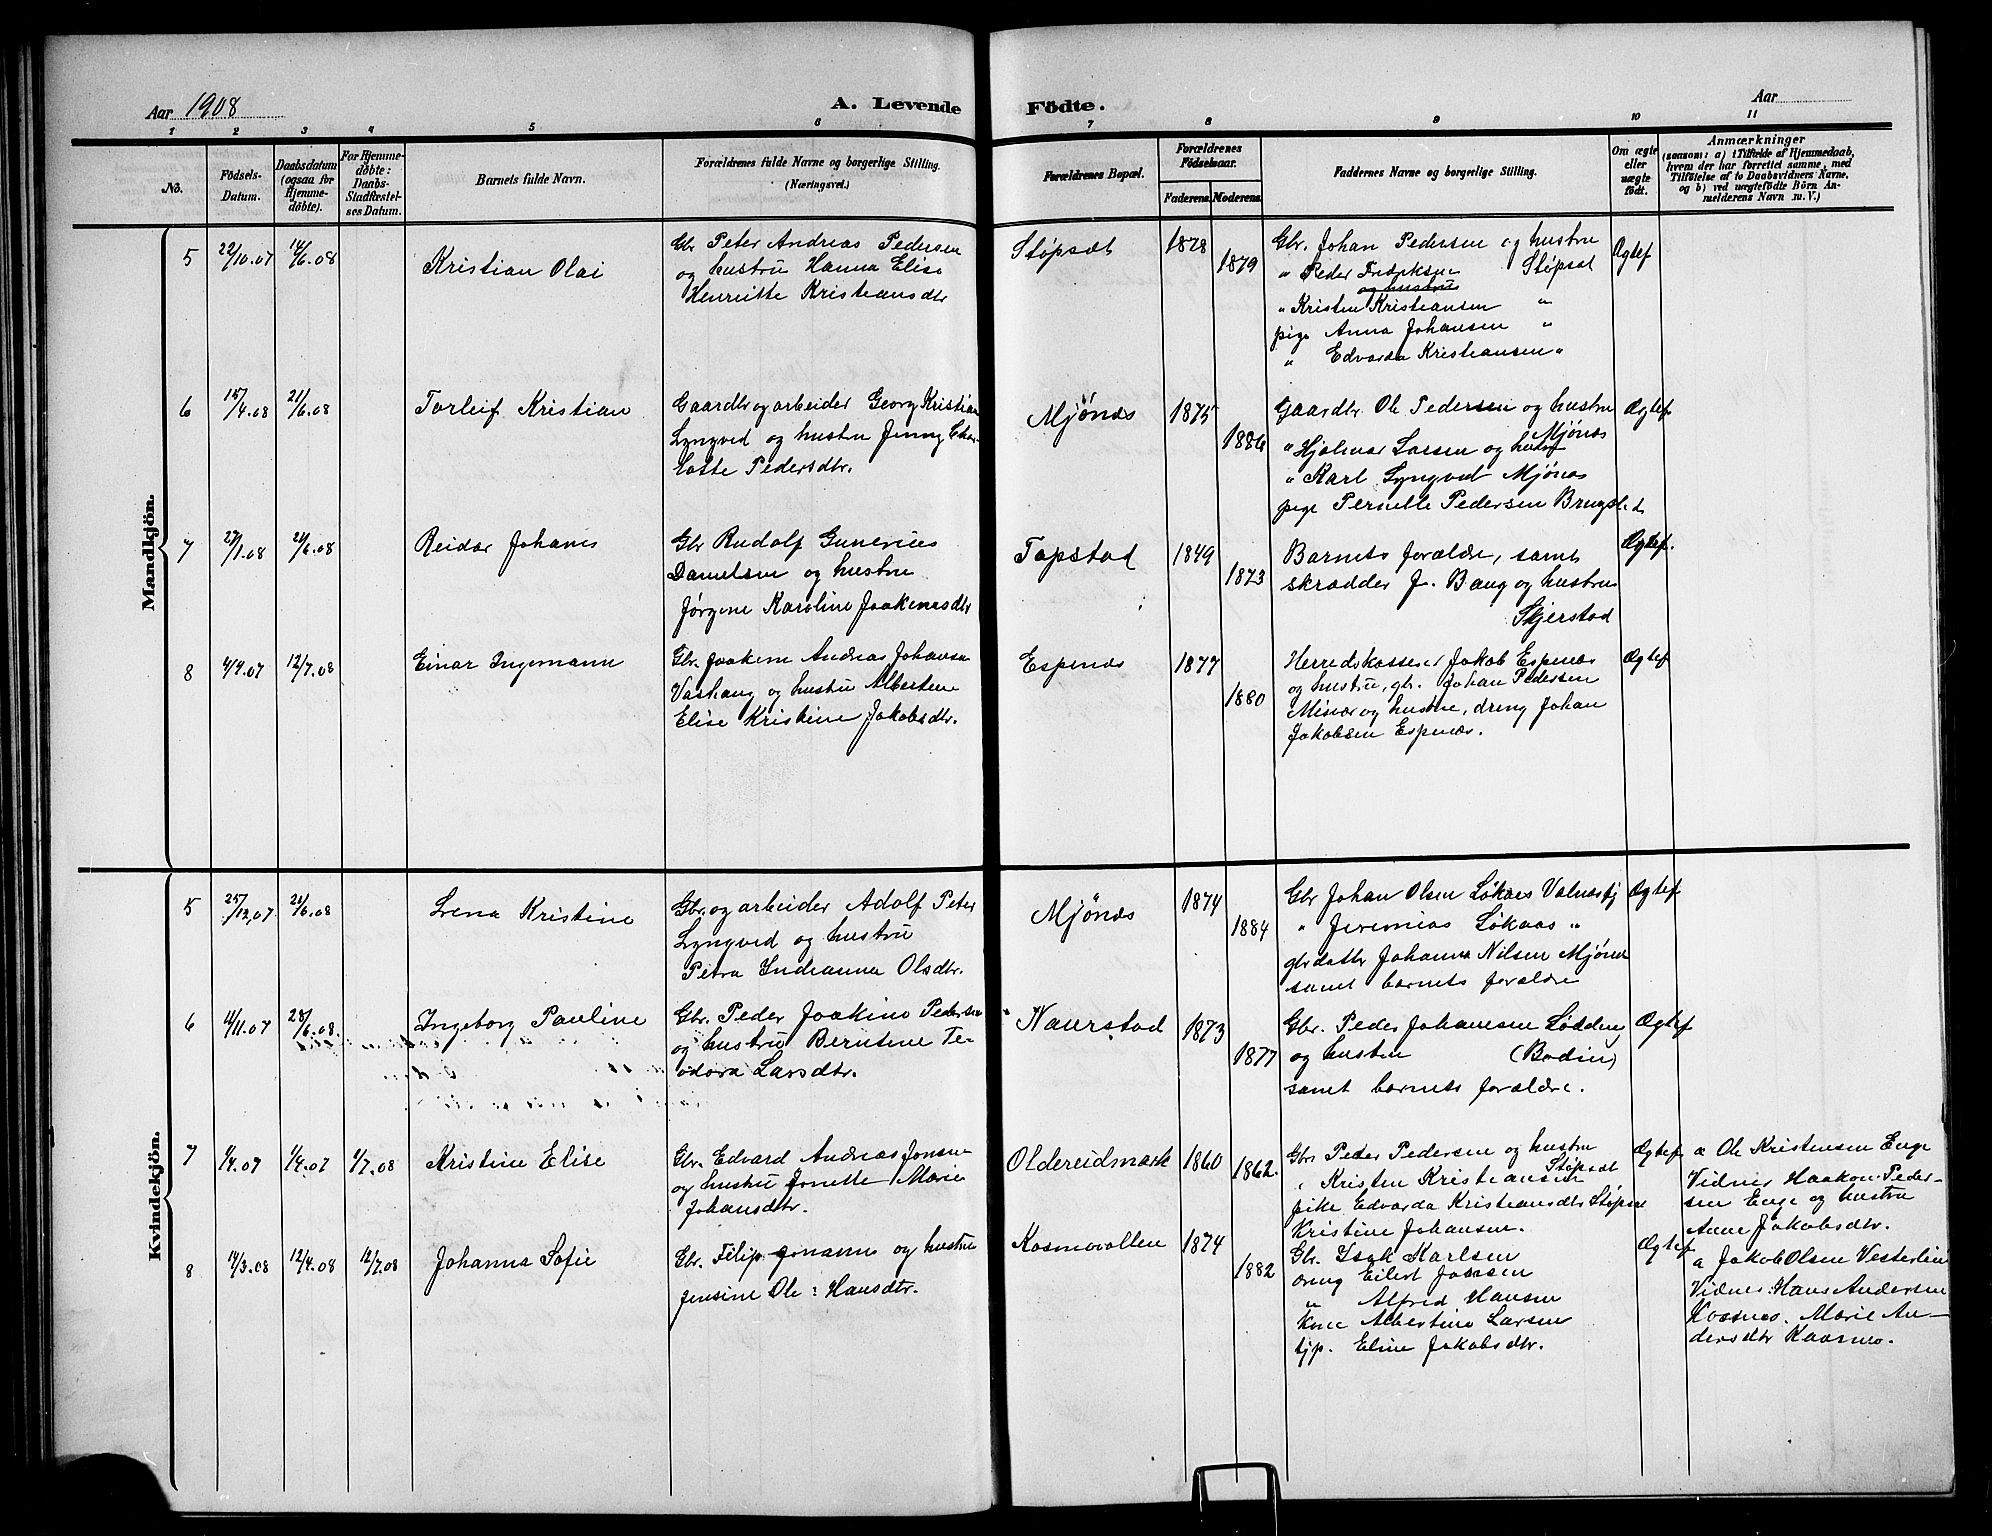 Aar 1908
A. Levende Födte.
Aar
1 2 3 4 5 6 7 8 9 10 11
No.
Födsels-Datum.
Daabsdatum (ogsaa for Hjemmedöbte).
For Hjemmedöbte: Daabs-Stadfæstelses Datum.
Barnets fulde Navn.
Forældrenes fulde Navne og borgerlige Stilling. (Næringsvei.)
Forældrenes Bopæl.
Forældrenes Födselsaar.
Faderens. Moderens.
Faddernes Navne og borgerlige Stilling.
Om ægte eller uægte födt.
Anmærkninger
(saasom: a) i Tilfælde af Hjemmedaab, hvem der har forrettet samme, med Tilföielse af to Daabsvidners Navne, og b) ved uægtefödte Börn Anmelderens Navn m. V.)
Mandkjön.
5 22/10.07 14/6.08 Kristian Olai
Gbr Peter Andreas Pedersen
og hustru Hanna Elise
Henriette Kristiansdtr
Støpsæt 1878 1879
Gbr. Johan Pedersen og hustru
" Peder Fredriksen Støpsæt
og hustru
" Kristen Kristiansen "
pige Anna Johansen "
" Edvarda Kristiansen "
Ægtef
6 15/4.08 21/6.08 Torleif Kristian
Gaardbr og arbeider Georg Kristian
Lyngved og hustru Jenny Char-
lotte Pedersdtr.
Mjønæs 1875 1886
Gaardbr. Ole Pedersen og hustru
Mjönæs
" Hjalmar Larsen og hustr
" Karl Lyngved Mjønæs
pige Pernille Pedersen
Ægtef
7 27/1.08 21/6.08 Reidar Johanes
Gbr Rudolf Gunerius
Danielsen og hustru
Jørgine Karoline Joakimsdtr
Tapstad 1849 1873
Barnets forældre, samt
skrædder J. Baug og hustru
Skjerstad
Ægtef.
8 4/9.07 12/7.08 Einar Ingemann
Gbr. Joakim Andreas Johansen
Vashaug og hustru Albertine
Elise Kristine Jakobsdtr.
Espenæs 1877 1880
Herredskasserer Jakob Espenæs
og hustru, gbr. Johan Pedersen
Misvær og hustru, dreng Johan
Jakobsen Espenæs.
Ægtef
Kvindekjön.
5 25/12.07 21/6.08 Lena Kristine
Gbr. og arbeider Adolf Peter
Lyngved og hustru
Petra Indianna Olsdtr.
Mjönæs 1874 1884
Gbr Johan Olsen Løkaas Valnæsfj
" Jeremias Løkaas "
gbrdatter Johanna Nilsen Mjönæs
samt barnets forældre
Ægtef
6 4/11.07 28/6.08. Ingeborg Pauline
Gbr. Peder Joakim Pedersen
og hustru Berntine Te-
odora Larsdtr.
Naurstad 1873 1877
Gbr. Peder Johansen Lødding
og hustru (Bodin)
samt barnets forældre.
Ægtef
7 1/4.07 1/4.07 1/7.08 Kristine Elise
Gbr. Edvard Andreas Jonsen
og hustru Jonette Marie
Johansdtr.
Oldereidmark 1860 1862.
Gbr Peter Pedersen og hustru
Støpsæt
" Kristen Kristiansen
pike Edvarda Kristiansdtr Støpsæt
Kristine Johansen.
Ægtef
a Ole Kristensen Enge
Vidner Haakon Peder-
sen Enge og hustru
Anne Jakobsdtr.
8 14/3.08 12/4.08 12/7.08 Johanna Sofie
Gbr. Filip Johannes og hustru
Jensine Ole: Hansdtr.
Kosmovollen 1874 1882
Gbr. Isak Karlsen
dreng Eilert Jonsen
" Alfred Hansen
Kone Albertine Larsen
tjp. Eline Jakobsdtr.
Ægtef
a Jakob Olsen Vesterlid
Vidner: Hans Andersen
Kosmo. Marie An-
dersdtr Kosmo.